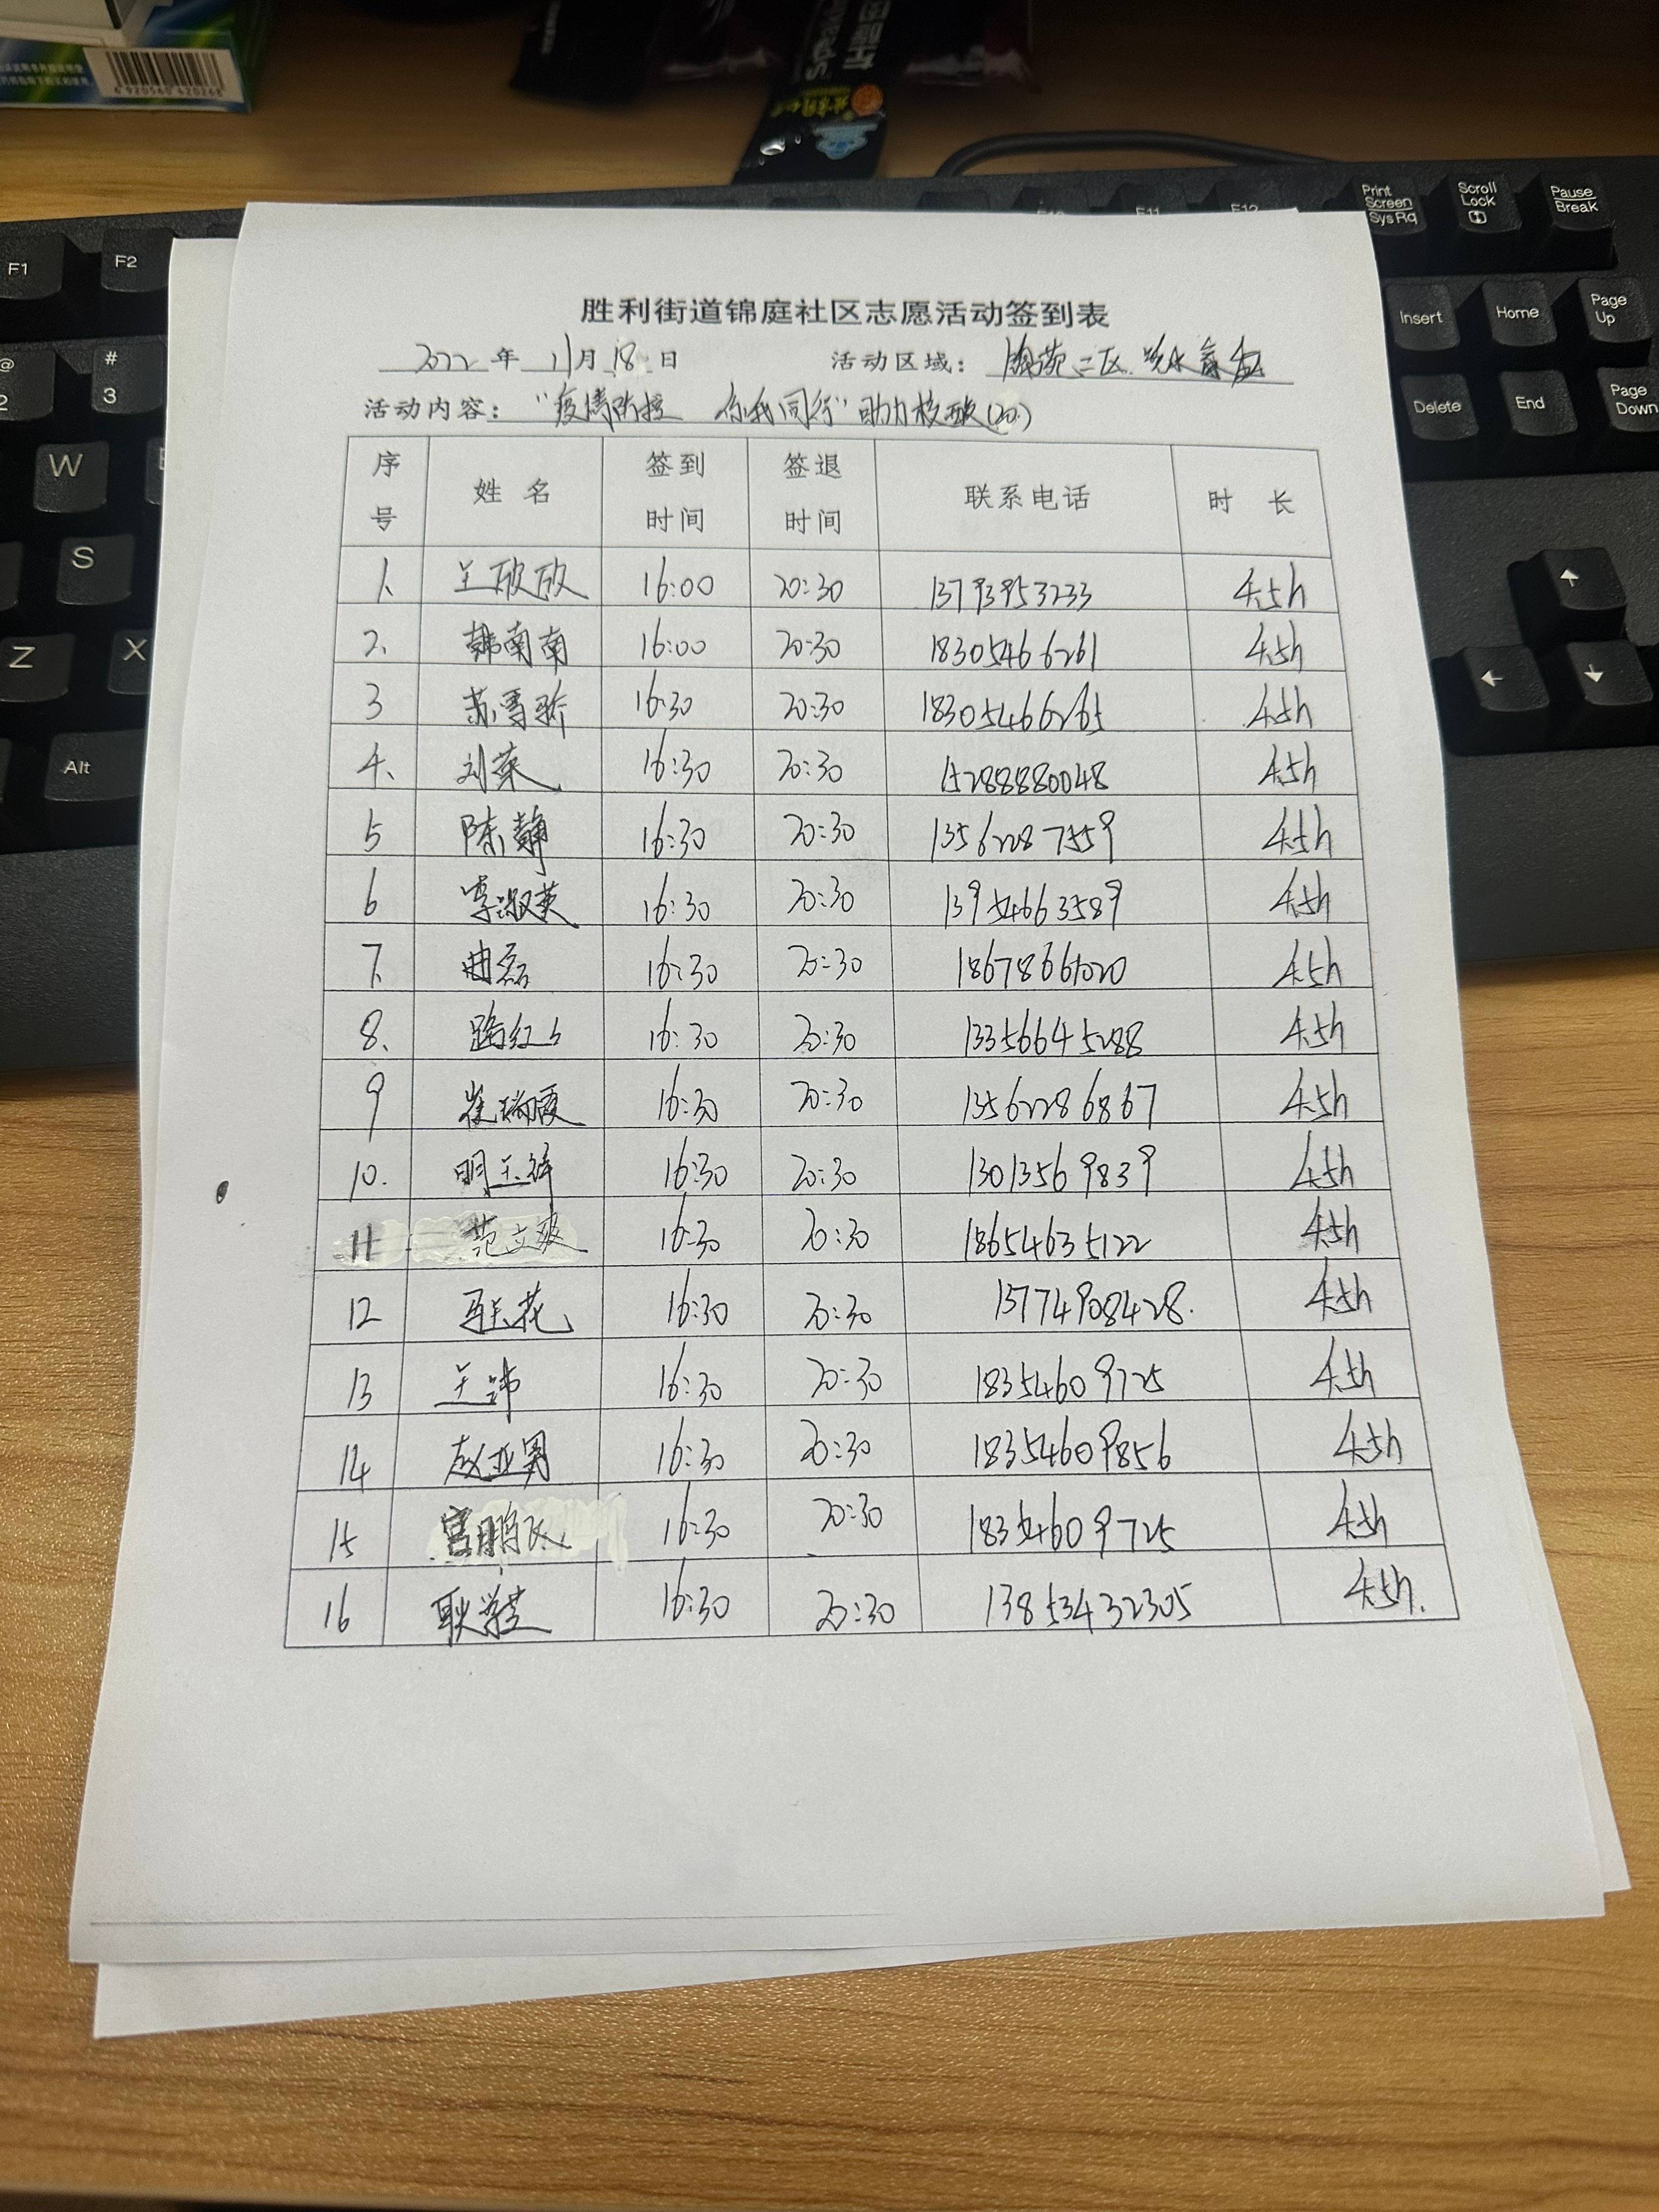 6 920560 420268
F1
F2
F10
F11
F12
Print Screen SysRq
Scroll Lock
Pause Break
Insert
Home
Page Up
Delete
End
Page Down
@ 2
# 3
W
S
Z
X
Alt
胜利街道锦庭社区志愿活动签到表
2022 年 11月 18 日 活动区域: 二区
活动内容: "疫情防控 你我同行"助力核酸(20.)
序号 姓名 签到时间 签退时间 联系电话 时长
1、 王欣欣 16:00 20:30 13793953233 4.5h
2、 韩南南 16:00 20:30 18305466261 4.5h
3 苏雪娇 16:30 20:30 18305466265 4.5h
4、 刘荣 16:30 20:30 15288880048 4.5h
5 陈静 16:30 20:30 13562287559 4.5h
6 李淑英 16:30 20:30 13954663589 4.5h
7、 曲磊 16:30 20:30 18678661020 4.5h
8、 路红 16:30 20:30 13356645288 4.5h
9 崔瑞霞 16:30 20:30 13562286867 4.5h
10. 明玉 16:30 20:30 13013569839 4.5h
11 范文爽 16:30 20:30 18654635122 4.5h
12 花 16:30 20:30 13774908428. 4.5h
13 王 16:30 20:30 18354609725 4.5h
14 赵亚男 16:30 20:30 18354609856 4.5h
15 宫鹏飞 16:30 20:30 18354609725 4.5h
16 耿 16:30 20:30 13853432305 4.5h.